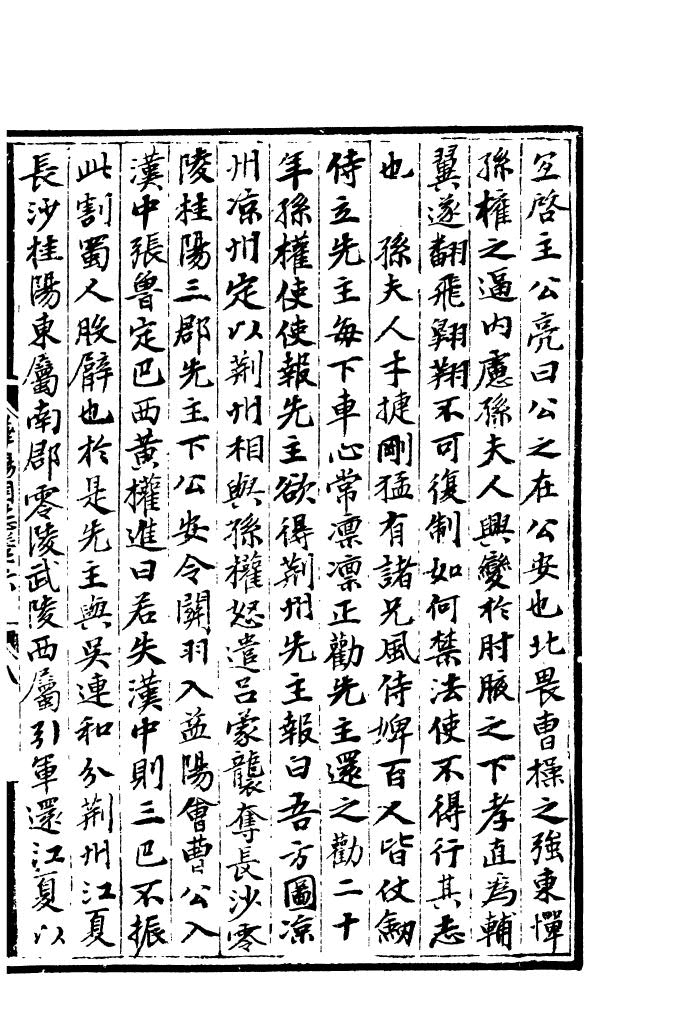 宜啓主公亮曰公之在公安也北畏曹操之強東憚
孫權之逼内慮孫夫人興變於肘腋之下孝直為輔
翼遂翻飛翱翔不可復制如何禁法使不得行其志
也　孫夫人才捷剛猛有諸兄風侍婢百人皆仗劒
侍立先主每下車心常凛凛正勸先主還之勸二十
年孫權使使報先主欲得荆州先主報曰吾方圖凉
州凉州定以荆州相與孫權怒遣吕蒙襲奪長沙零
陵桂陽三郡先主下公安令關羽入益陽會曹公入
漢中張魯定巴西黄權進曰若失漢中則三巴不振
此割蜀人股臂也於是先主與吴連和分荆州江夏
長沙桂陽東屬南郡零陵武陵西屬引軍還江夏以